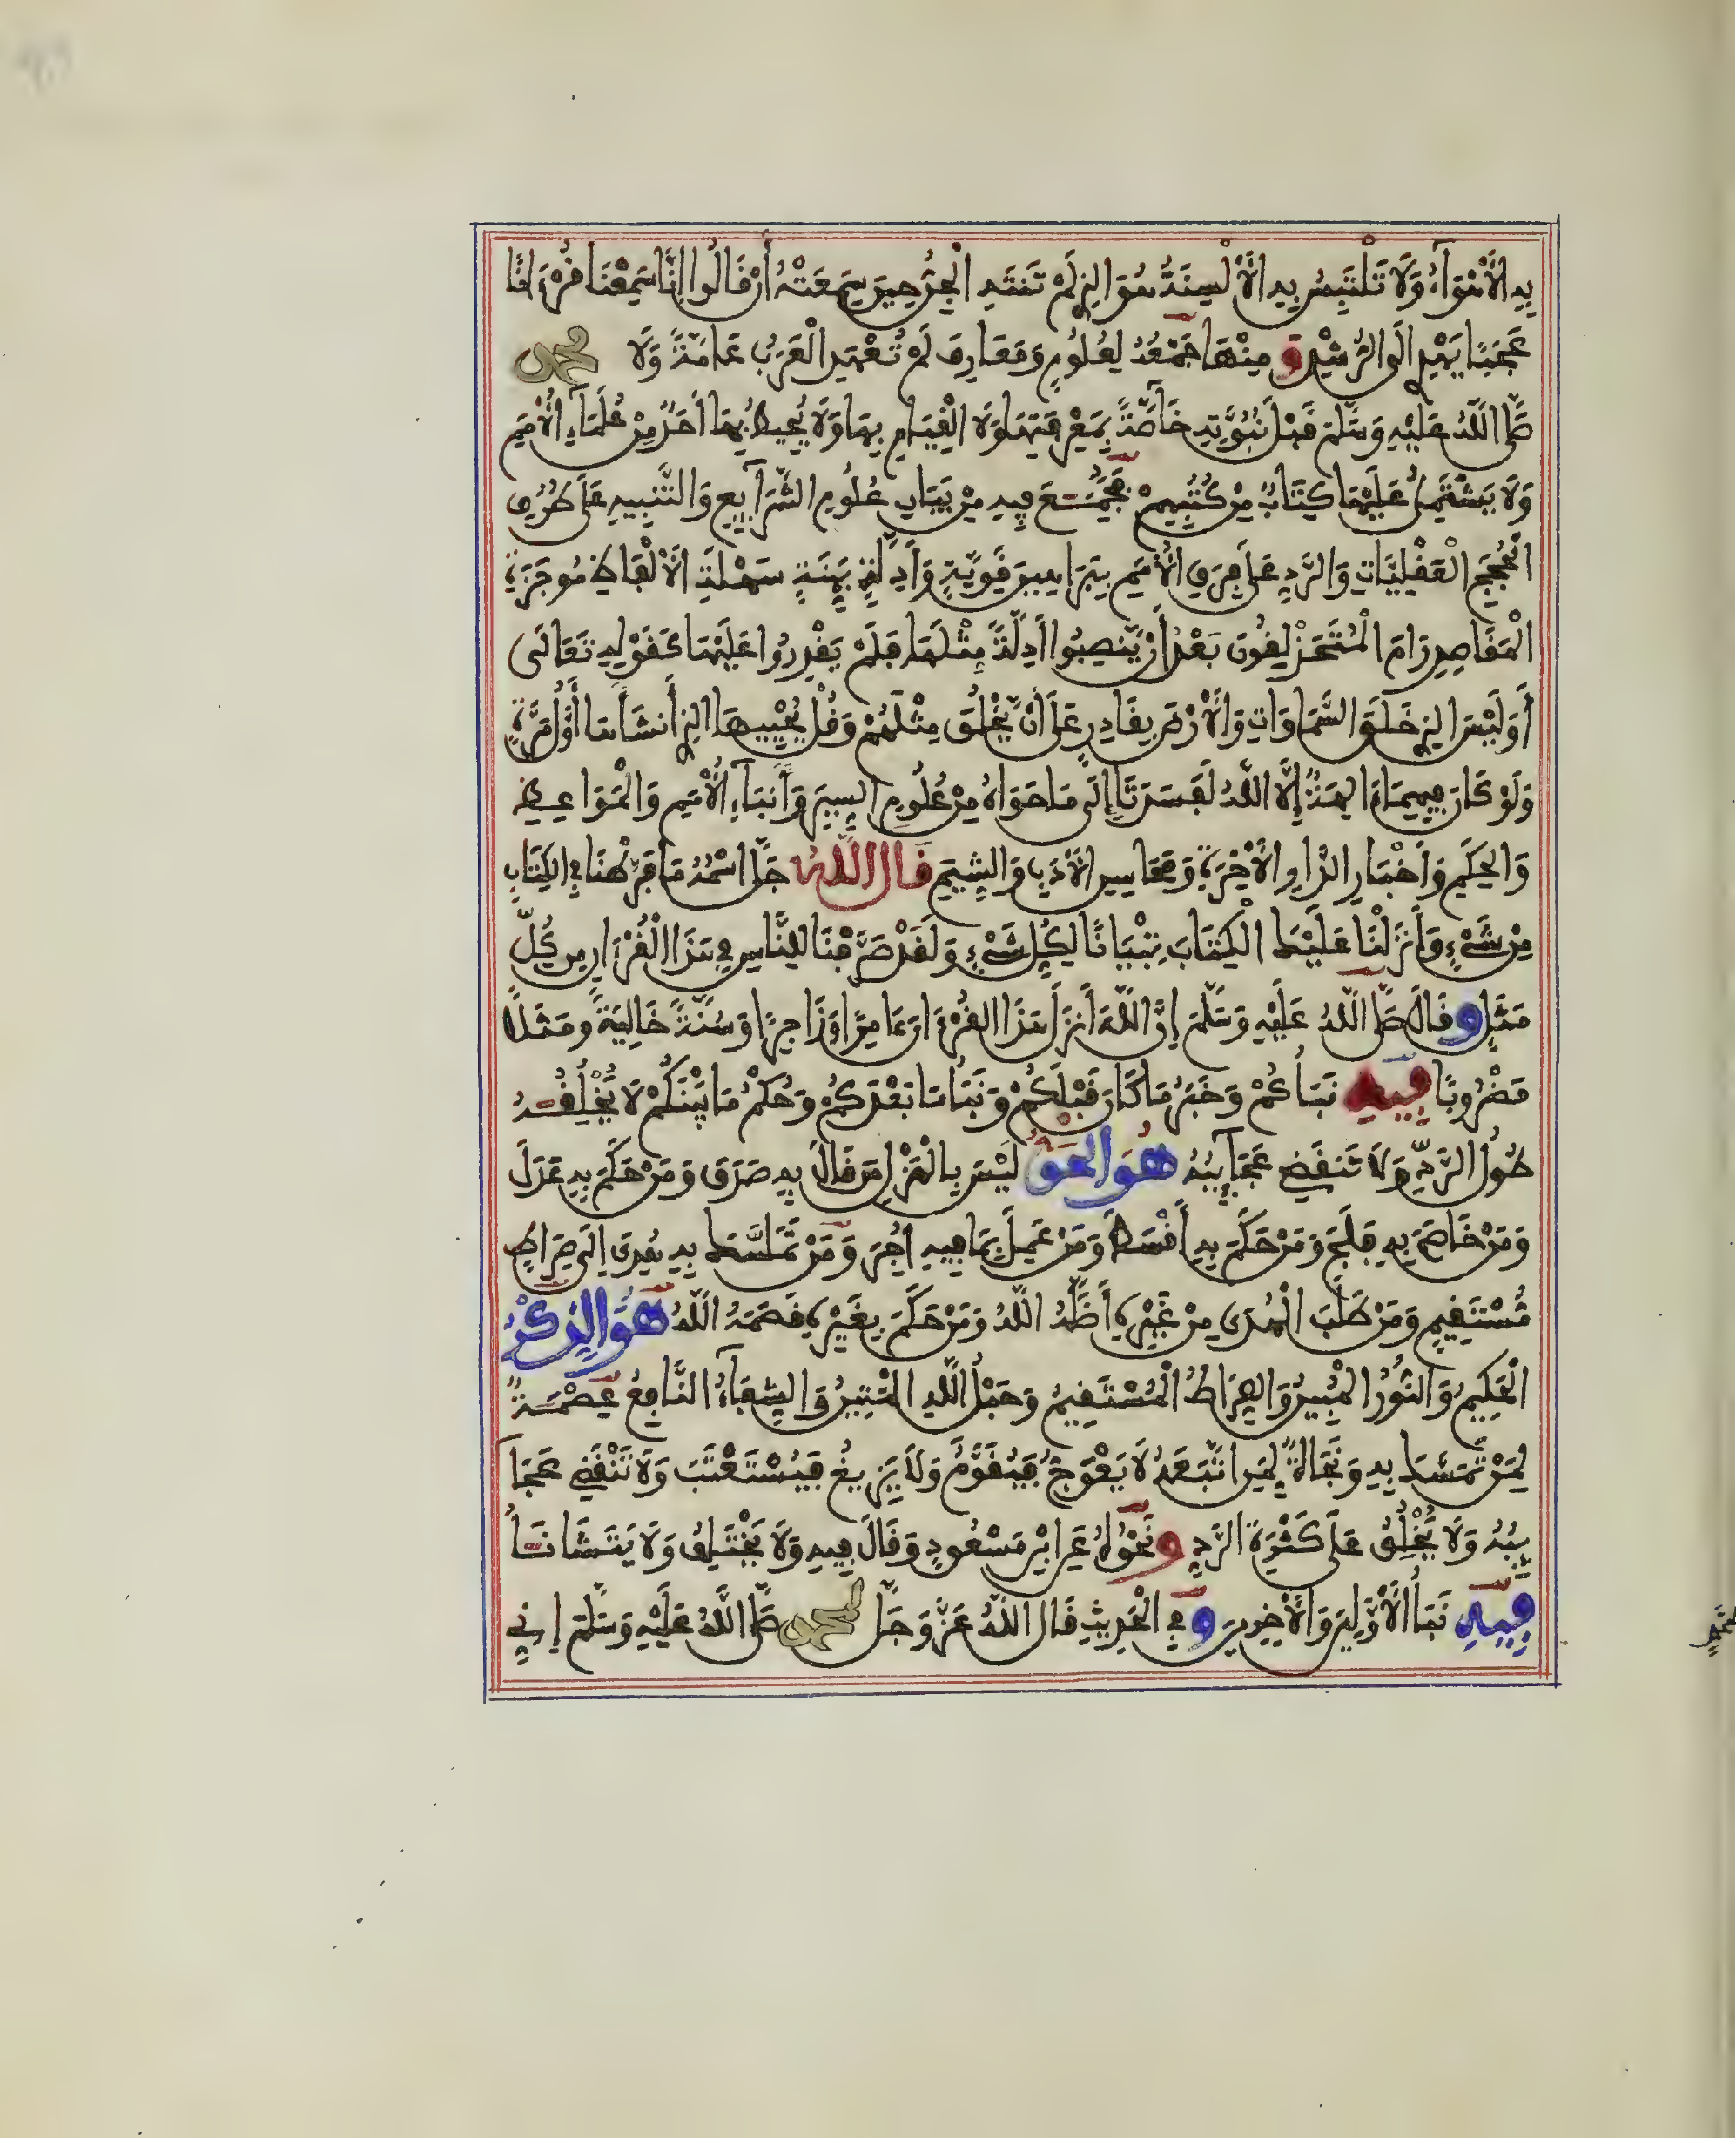 بِهِ الْأَهْوَآءُ وَلَا تَلْتَبِسُ بِهِ الْأَلْسِنَةُ هُوَ الذِي لَمْ تَنتَهِ الْجِنُّ حِينَ سَمِعَتْهُ أَن قَالُوا إِنَّا سَمِعْنَا قُرْءَانًا
عَجَبًا يَهْدِي إِلَى الرُّشْدِ وَ مِنْهَا جَمْعُهُ لِعُلُومٍ وَمَعَارِفَ لَمْ تُعْهَدِ الْعَرَبُ عَامَّةً وَلَا مُحَمَّدٌ
صَلَّى اللَّهُ عَلَيْهِ وَسَلَّمَ قَبْلَ نُبُوَّتِهِ خَآصَّةً بِمَعْرِفَتِهَا وَلَا الْقِيَامِ بِهَا وَلَا يُحِيطُ بِهَا أَحَدٌ مِنْ عُلَمَآءِ الْأُمَمِ
وَلَا يَشْتَمِلُ عَلَيْهَا كِتَابٌ مِنْ كُتُبِهِمْ فَجُمِعَ فِيهِ مِنْ بَيَانِ عُلُومِ الشَّرَآئِعِ وَالتَّنْبِيهِ عَلَى طُرُقِ
الْحُجَجِ الْعَقْلِيَّاتِ وَالرَّدِّ عَلَى فِرَقِ الْأُمَمِ بِبَرَاهِينَ قَوِيَّةٍ وَأَدِلَّةٍ بَيِّنَةٍ سَهْلَةِ الْأَلْفَاظِ مُوجَزَةِ
الْمَقَاصِدِ رَامَ الْمُتَحَذْلِقُونَ بَعْدُ أَنْ يَنْصِبُوا أَدِلَّةً مِثْلَهَا فَلَمْ يَقْدِرُوا عَلَيْهَا كَقَوْلِهِ تَعَالَى
أَوَلَيْسَ الذِي خَلَقَ السَّمَاوَاتِ وَالْأَرْضَ بِقَادِرٍ عَلَى أَنْ يَخْلُقَ مِثْلَهُمْ وَقُلْ يُحْيِيهَا الذِي أَنشَأَهَا أَوَّلَ مَرَّةٍ
وَلَوْ كَانَ فِيهِمَا ءَالِهَةٌ إِلَّا اللَّهُ لَفَسَدَتَا إِلَى مَا حَوَاهُ مِنْ عُلُومِ السِّيَرِ وَأَنبَاءِ الْأُمَمِ وَالْمَوَاعِظِ
وَالْحِكَمِ وَأَخْبَارِ الدَّارِ الْأَخِرَةِ وَمَحَاسِنِ الْأَدَبِ وَالشِّيَمِ قَالَ اللَّهُ جَلَّ اسْمُهُ مَا فَرَّطْنَا فِي الْكِتَابِ
مِنْ شَيْءٍ وَأَنزَلْنَا عَلَيْكَ الْكِتَابَ تِبْيَانًا لِكُلِّ شَيْءٍ وَلَقَدْ صَرَّفْنَا لِلنَّاسِ فِي هَذَا الْقُرْءَانِ مِن كُلِّ
مَثَلٍ وَ قَالَ صَلَّى اللَّهُ عَلَيْهِ وَسَلَّمَ إِنَّ اللَّهَ أَنزَلَ هَذَا الْقُرْءَانَ ءَامِرًا وَزَاجِرًا وَسُنَّةً خَالِيَةً وَمَثَلًا
مَضْرُوبًا فِيهِ نَبَأُكُمْ وَخَبَرُ مَا كَانَ قَبْلَكُمْ وَنَبَأُ مَا بَعْدَكُمْ وَحُكْمُ مَا بَيْنَكُمْ لَا يُخْلِقُهُ
طُولُ الرَّدِّ وَلَا تَنقَضِي عَجَآئِبُهُ هُوَ الْحَقُّ لَيْسَ بِالْهَزْلِ مَن قَالَ بِهِ صَدَقَ وَمَنْ حَكَمَ بِهِ عَدَلَ
وَمَنْ خَاصَمَ بِهِ فَلَجَ وَمَنْ حَكَمَ بِهِ أَقْسَطَ وَمَنْ عَمِلَ بِمَا فِيهِ أُجِرَ وَمَنْ تَمَسَّكَ بِهِ هُدِيَ إِلَى صِرَاطٍ
مُسْتَقِيمٍ وَمَنْ طَلَبَ الْهُدَى مِنْ غَيْرِهِ أَضَلَّهُ اللَّهُ وَمَنْ حَكَمَ بِغَيْرِهِ قَصَمَهُ اللَّهُ هُوَ الذِّكْرُ
الْحَكِيمُ وَالنُّورُ الْمُبِينُ وَالصِّرَاطُ الْمُسْتَقِيمُ وَحَبْلُ اللَّهِ الْمَتِينُ وَالشِّفَآءُ النَّافِعُ عِصْمَةٌ
لِمَنْ تَمَسَّكَ بِهِ وَنَجَاةٌ لِمَنِ اتَّبَعَهُ لَا يَعْوَجُّ فَيُقَوَّمُ وَلَا يَزِيغُ فَيُسْتَعْتَبَ وَلَا تَنْقَضِي عَجَآ
ئِبُهُ وَلَا يَخْلُقُ عَلَى كَثْرَةِ الرَّدِّ وَ نَحْوُهُ عَنِ ابْنِ مَسْعُودٍ وَقَالَ فِيهِ وَلَا يَخْتَلِفُ وَلَا يَتَشَانَأُ
فِيهِ نَبَأُ الْأَوَّلِينَ وَالْأَخِرِينَ وَ فِي الْحَدِيثِ قَالَ اللَّهُ عَزَّ وَجَلَّ لِمُحَمَّدٍ صَلَّى اللَّهُ عَلَيْهِ وَسَلَّمَ إِنِّي